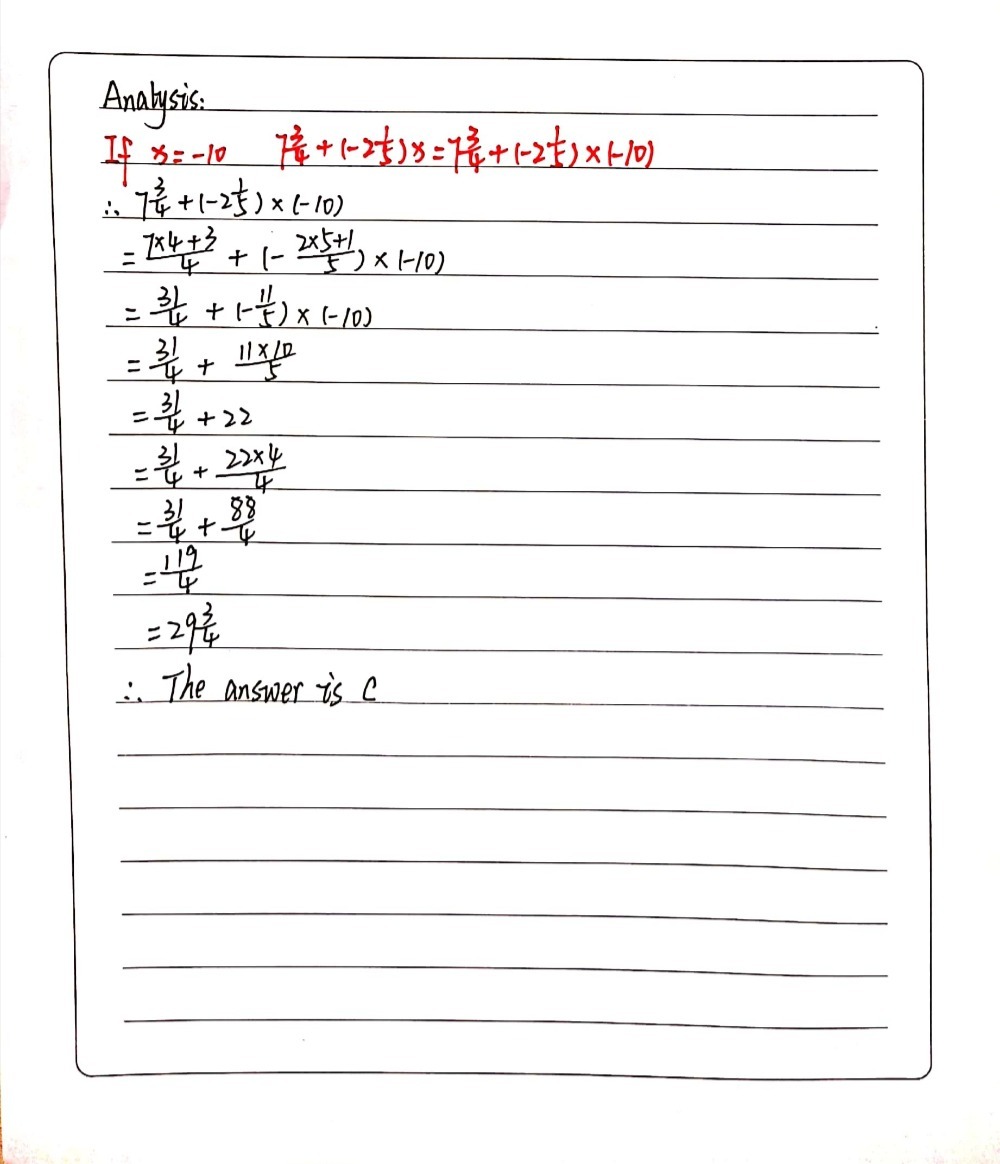 Analysis:
If x=-10 7 3/4 + (-2 1/5)x = 7 3/4 + (-2 1/5) × (-10)
∴ 7 3/4 + (-2 1/5) × (-10)
= (7×4+3)/4 + (- (2×5+1)/5) × (-10)
= 31/4 + (-11/5) × (-10)
= 31/4 + (11×10)/5
= 31/4 + 22
= 31/4 + (22×4)/4
= 31/4 + 88/4
= 119/4
= 29 3/4
∴ The answer is C